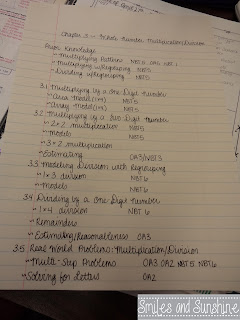 Chapter 3 - Whole Number Multiplication/Division
Prior Knowledge
- Multiplying Patterns NBT 5 OA5 NBT 1
- Multiplying w/Regrouping NBT5
- Dividing w/Regrouping NBT5
3.1 Multiplying by a One Digit Number
- Area model (2m) NBT5
- Array model (2m) NBT5
3.2 Multiplying by a Two Digit Number
- 2x2 multiplication NBT5
- Models NBT5
- 3x2 multiplication
- Estimating OA3/NBT3
3.3 Modeling Division with Regrouping
- 1x3 division NBT6
- Models NBT6
3.4 Dividing by a One-Digit Number
- 1x4 division NBT 6
- Remainders
- Estimating/Reasonableness OA3
3.5 Real World Problems: Multiplication/Division
- Multi-Step Problems OA3 OA2 NBT5 NBT6
- Solving for Letters OA2
Smiles and Sunshine